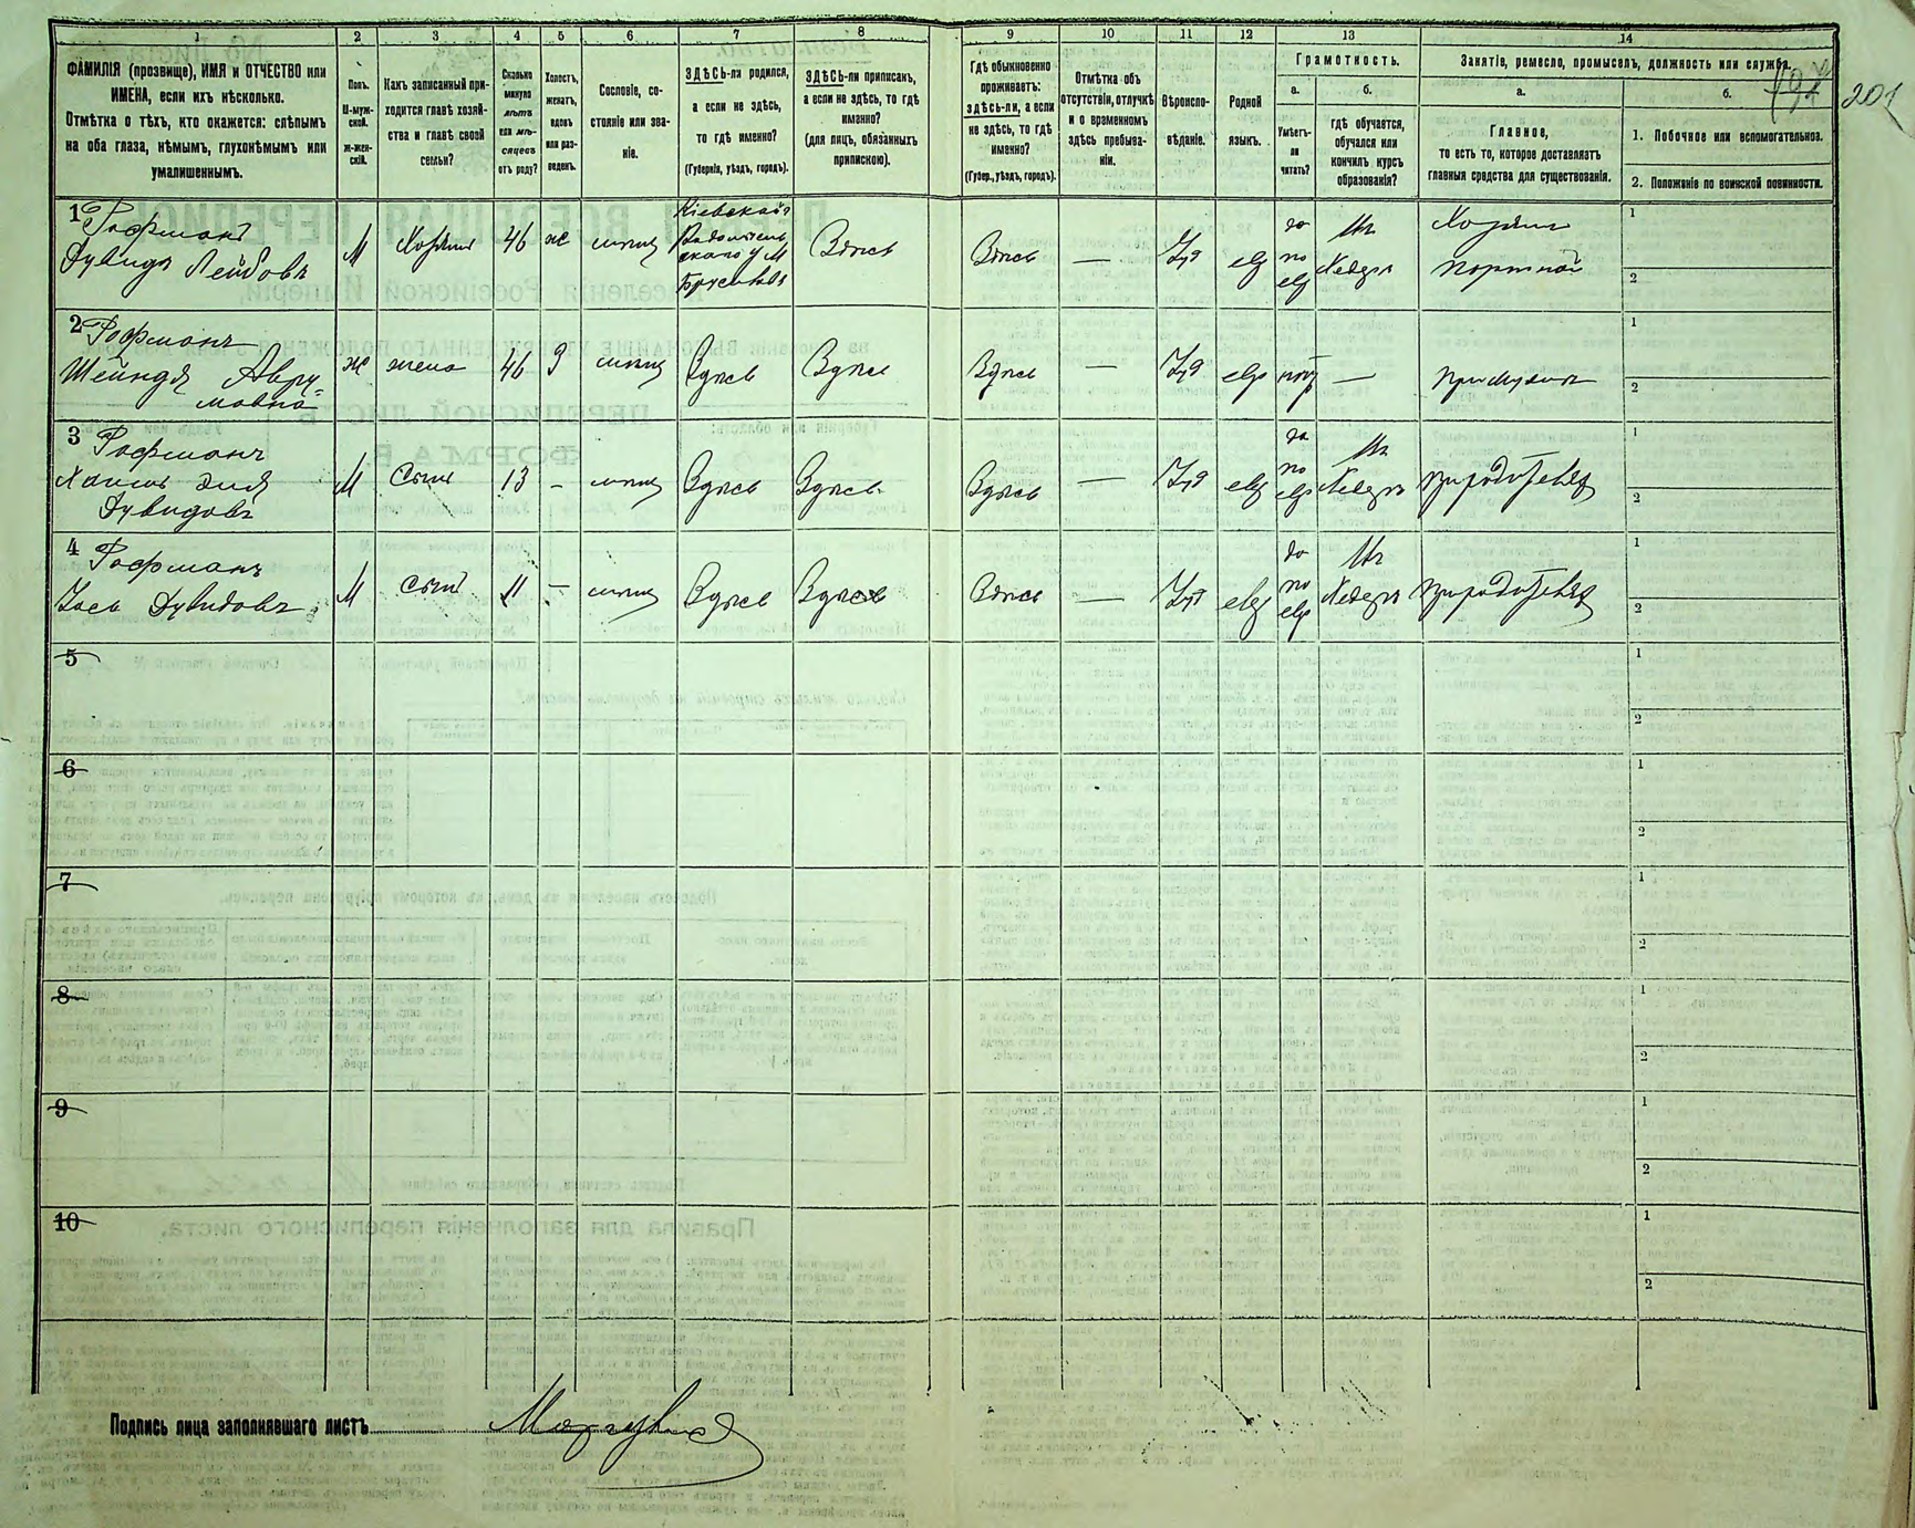 1
2
3
4
5
6
7
8
9
10
11
12
13
14
ФАМИЛІЯ (прозвище), ИМЯ и ОТЧЕСТВО или
ИМЕНА, если ихъ нѣсколько.
Отмѣтка о тѣхъ, кто окажется: слѣпымъ
на оба глаза, нѣмымъ, глухонѣмымъ или
умалишеннымъ.
Полъ.
М-муж-
ской.
Ж-жен-
скій.
Какъ записанный при-
ходится главѣ хозяй-
ства и главѣ своей
семьи?
Сколько
минуло
лѣтъ
или мѣ-
сяцевъ
отъ роду?
Холостъ,
женатъ,
вдовъ
или раз-
веденъ.
Сословіе, со-
стояніе или зва-
ніе.
ЗДѢСЬ-ли родился,
а если не здѣсь,
то гдѣ именно?
(Губернія, уѣздъ, городъ).
ЗДѢСЬ-ли приписанъ,
а если не здѣсь, то гдѣ
именно?
(для лицъ, обязанныхъ
припискою).
Гдѣ обыкновенно
проживаетъ:
здѣсь-ли, а если
не здѣсь, то гдѣ
именно?
(Губер., уѣздъ, городъ).
Отмѣтка объ
отсутствіи, отлучкѣ
и о временномъ
здѣсь пребыва-
ніи.
Вѣроиспо-
вѣданіе.
Родной
языкъ.
Грамотность.
а.
Умѣетъ-
ли
читать?
б.
гдѣ обучается,
обучался или
кончилъ курсъ
образованія?
Занятіе, ремесло, промыселъ, должность или служба.
а.
Главное,
то есть то, которое доставляетъ
главныя средства для существованія.
б.
1. Побочное или вспомогательное.
2. Положеніе по воинской повинности.
201
1 Рофманъ
Дувидъ Лейбовъ
М
Хозяинъ
46
ж
Кіевской
Радомысль
скаго у М
Брусиловъ
Здѣсь
Здѣсь
—
евр
да
по
евр
Хедеръ
Хозяинъ
портной
1
2
2 Рофманъ
Шейндя Авру-
мовна
ж
жена
46
Здѣсь
Здѣсь
Здѣсь
—
евр
нѣтъ
—
при мужѣ
1
2
3 Рофманъ
Дувидовъ
М
Сынъ
13
-
Здѣсь
Здѣсь
Здѣсь
—
евр
да
по
евр
Хедеръ
при родителяхъ
1
2
4 Рофманъ
Дувидовъ
М
сынъ
11
—
Здѣсь
Здѣсь
Здѣсь
—
евр
да
по
евр
Хедеръ
при родителяхъ
1
2
5
1
2
6
1
2
7
1
2
8
1
2
9
1
2
10
1
2
Подпись лица заполнявшаго листъ